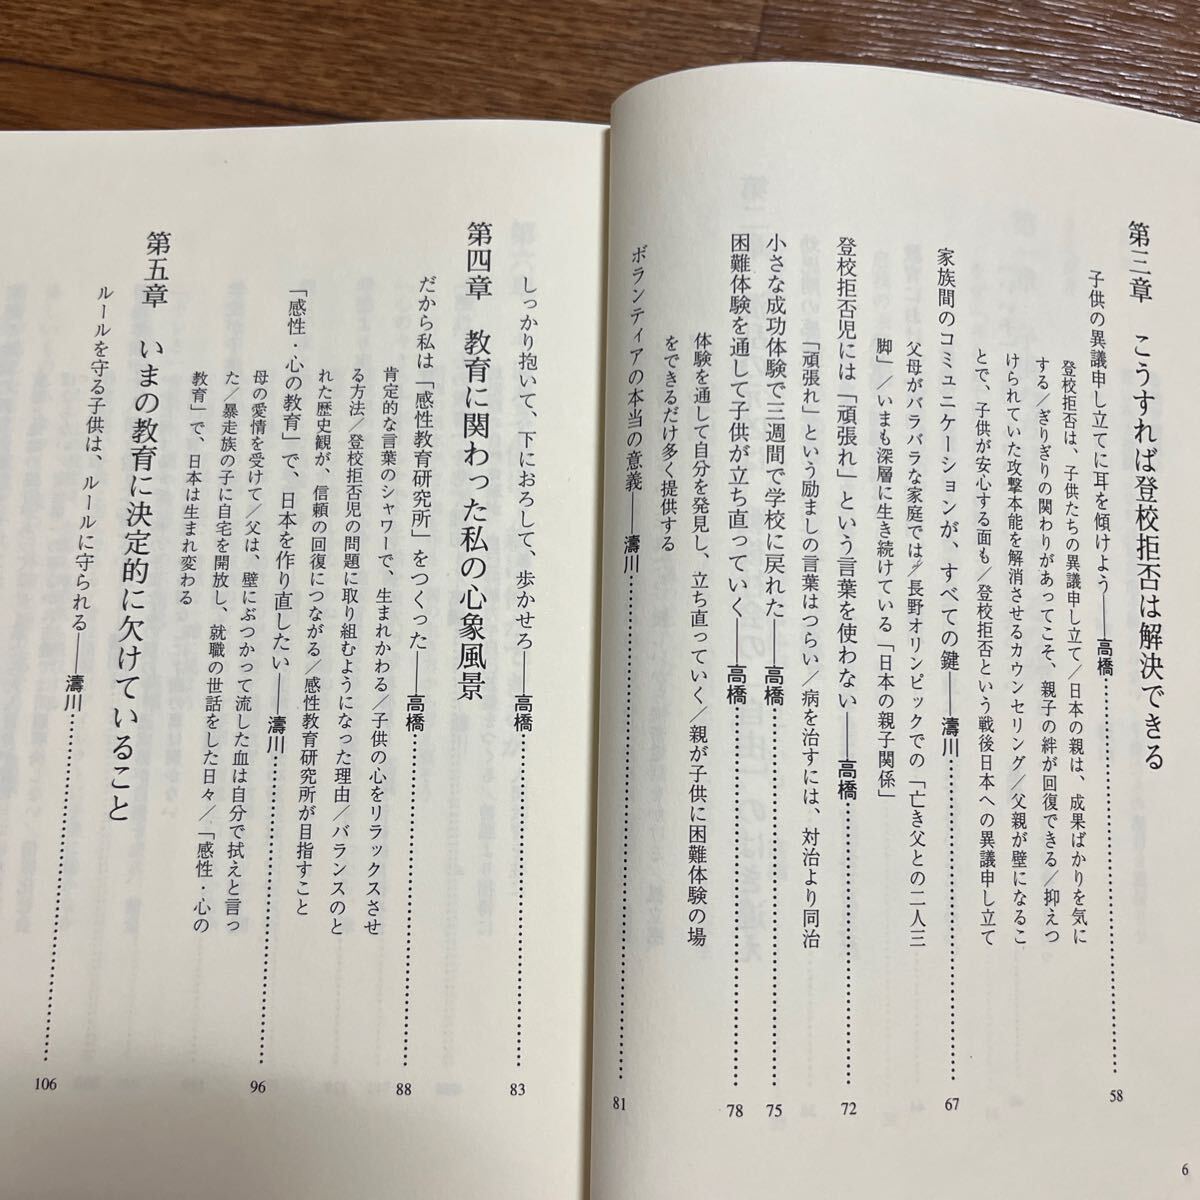 第三章　こうすれば登校拒否は解決できる
子供の異議申し立てに耳を傾けよう――高橋……………………58
登校拒否は、子供たちの異議申し立て／日本の親は、成果ばかりを気に
する／ぎりぎりの関わりがあってこそ、親子の絆が回復できる／抑えつ
けられていた攻撃本能を解消させるカウンセリング／父親が壁になるこ
とで、子供が安心する面も／登校拒否という戦後日本への異議申し立て
家族間のコミュニケーションが、すべての鍵――濤川……………………67
父母がバラバラな家庭では／長野オリンピックでの「亡き父との二人三
脚」／いまも深層に生き続けている「日本の親子関係」
登校拒否児には「頑張れ」という言葉を使わない――高橋……………………72
「頑張れ」という励ましの言葉はつらい／病を治すには、対治より同治
小さな成功体験で三週間で学校に戻れた――高橋……………………75
困難体験を通して子供が立ち直っていく――高橋……………………78
体験を通して自分を発見し、立ち直っていく／親が子供に困難体験の場
をできるだけ多く提供する
ボランティアの本当の意義――濤川……………………81
6
しっかり抱いて、下におろして、歩かせろ――高橋……………………83
第四章　教育に関わった私の心象風景
だから私は「感性教育研究所」をつくった――高橋……………………88
肯定的な言葉のシャワーで、生まれかわる／子供の心をリラックスさせ
る方法／登校拒否児の問題に取り組むようになった理由／バランスのと
れた歴史観が、信頼の回復につながる／感性教育研究所が目指すこと
「感性・心の教育」で、日本を作り直したい――濤川……………………96
母の愛情を受けて／父は、壁にぶつかって流した血は自分で拭えと言っ
た／暴走族の子に自宅を開放し、就職の世話をした日々／「感性・心の
教育」で、日本は生まれ変わる
第五章　いまの教育に決定的に欠けていること
ルールを守る子供は、ルールに守られる――濤川……………………106